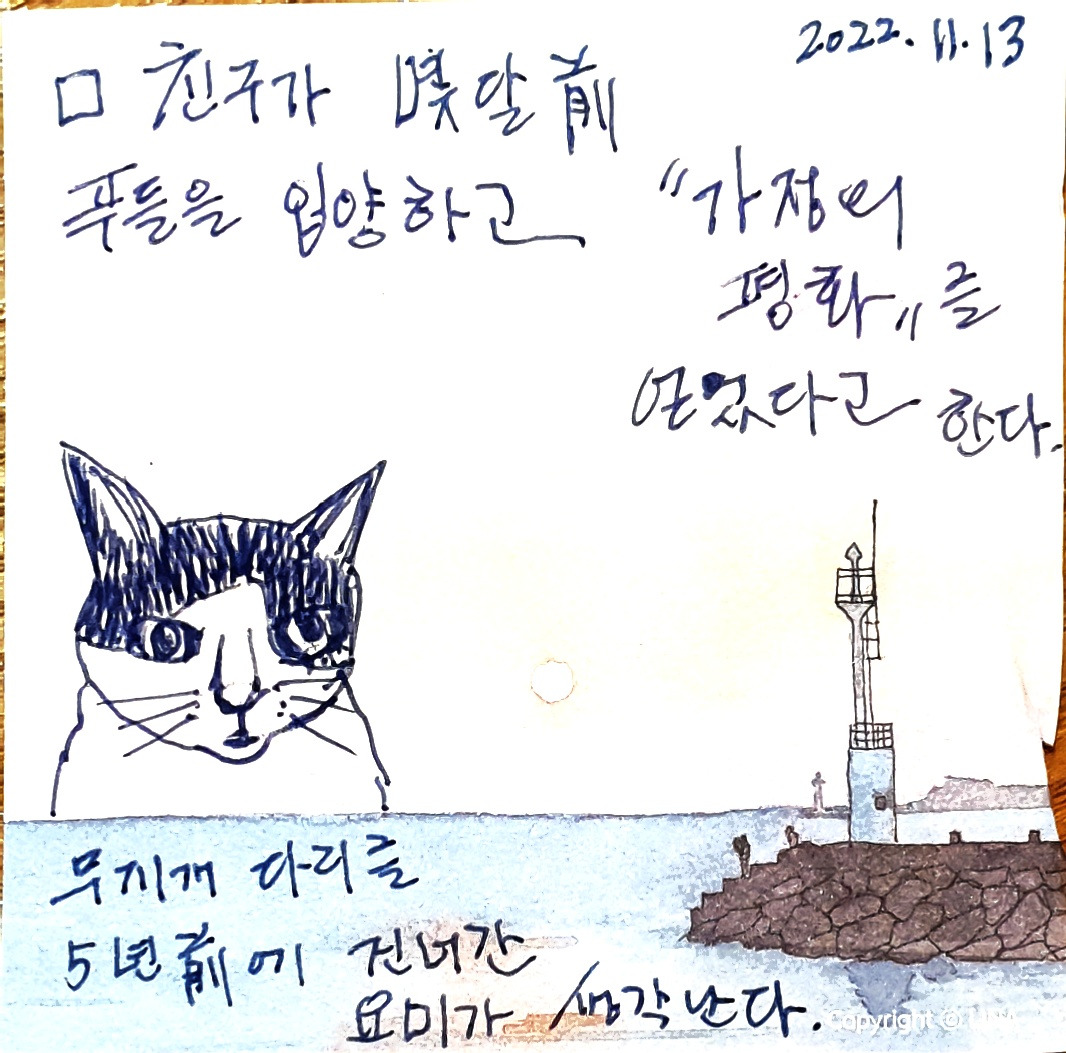 2022. 11. 13
□ 친구가 몇달 前
푸들을 입양하고
"가정의
평화"를
얻었다고 한다.
무지개 다리를
5년 前에 건너간
요미가 생각난다.
Copyright ©